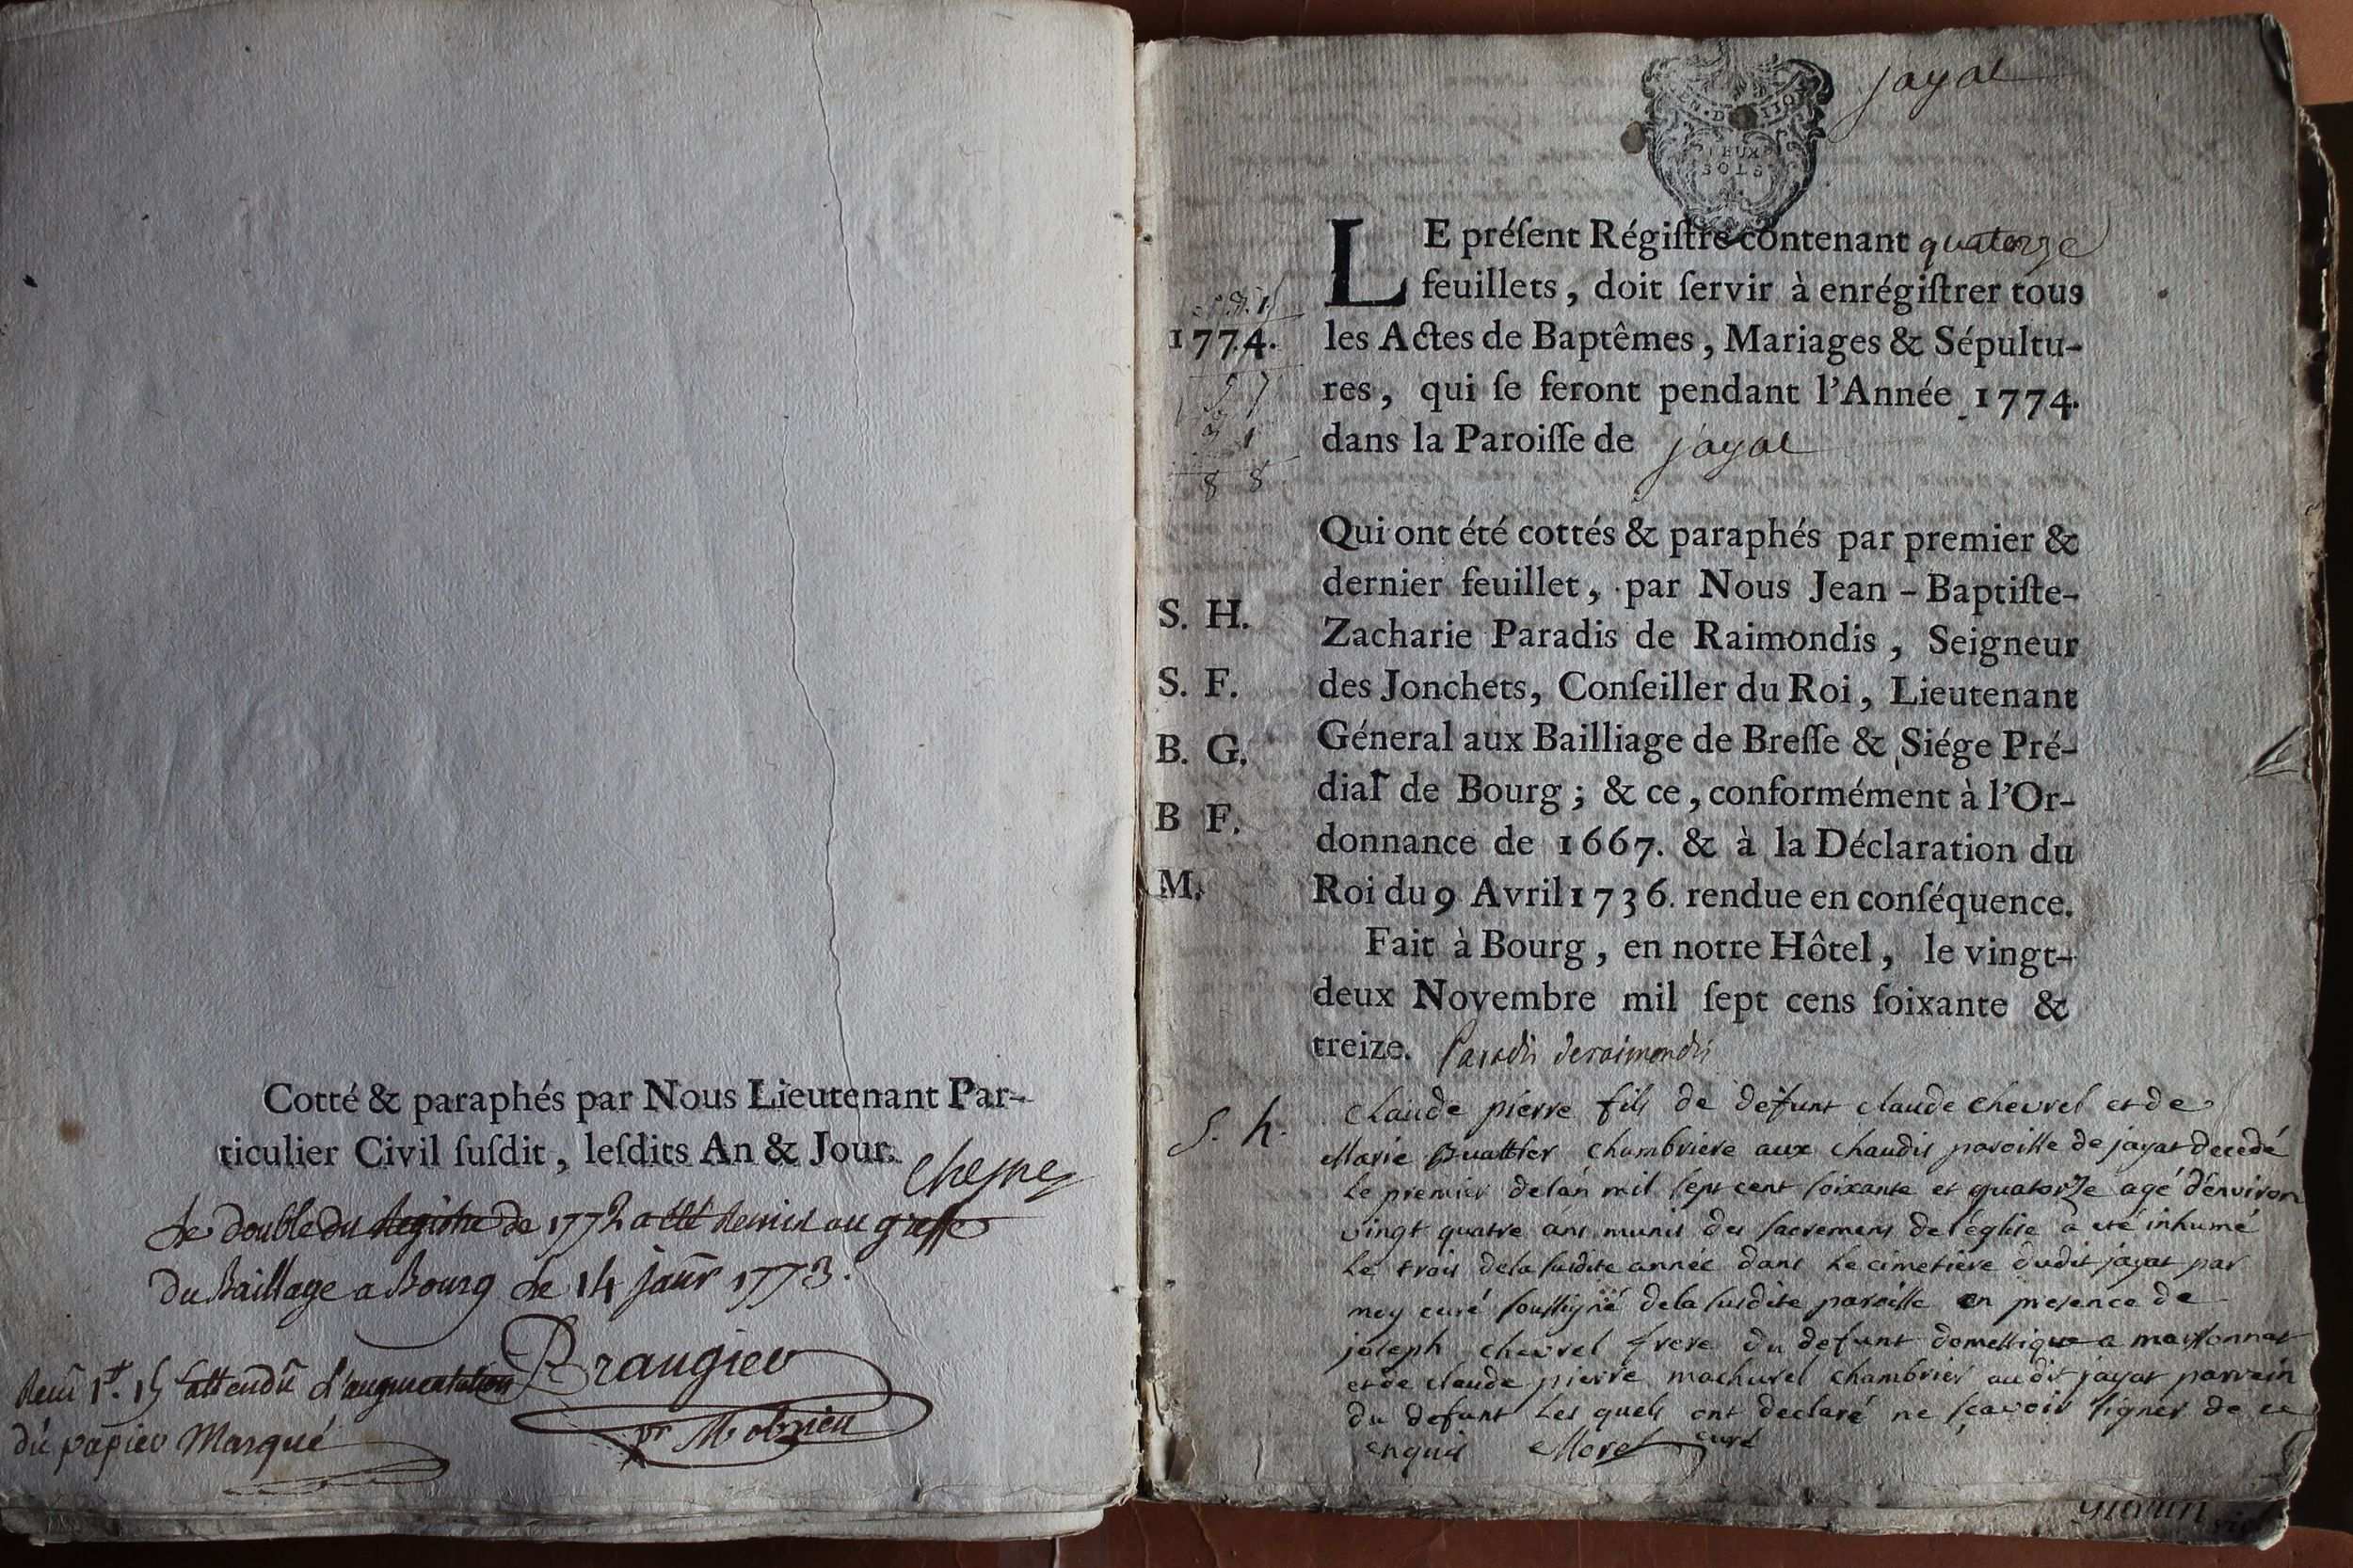 Cotté & paraphés par Nous Lieutenant Par-
ticulier Civil ſuſdit, leſdits An & Jour.
Chesne
Le double du Registre de 1772 a été remis au greffe
du Bailliage a Bourg le 14 janr 1773.
attendu l'augmentation
du papier Marqué
Brangier
pr M. obrien
jayat
DEUX
SOLS
LE préſent Régiſtre contenant quatorze
feuillets, doit ſervir à enrégiſtrer tous
1774.
les Actes de Baptêmes, Mariages & Sépultu-
res, qui ſe feront pendant l'Année 1774.
dans la Paroiſſe de jayat
8 8
Qui ont été cottés & paraphés par premier &
dernier feuillet, par Nous Jean-Baptiſte-
S. H.
Zacharie Paradis de Raimondis, Seigneur
S. F.
des Jonchets, Conſeiller du Roi, Lieutenant
B. G.
Géneral aux Bailliage de Breſſe & Siége Pré-
B F.
dial de Bourg; & ce, conformément à l'Or-
donnance de 1667. & à la Déclaration du
M.
Roi du 9 Avril 1736. rendue en conſéquence.
Fait à Bourg, en notre Hôtel, le vingt-
deux Novembre mil ſept cens ſoixante &
treize. Paradis deraimondis
S. h.
claude pierre fils de defunt claude chevrel et de
Marie chambriere aux chaudis paroisse de jayat decedé
le premier delan mil sept cent soixante et quatorze agé denviron
vingt quatre ans munis des sacremens de l'église a eté inhumé
le trois dela susdite année dans le cimetiere dudit jayat par
moy curé soussigné dela susdite paroisse en presence de
joseph chevrel frere du defunt domestique a marsonnat
et de claude pierre machurel chambrier audit jayat parrein
du defunt les quels ont declaré ne sçavoir signer de ce
enquis Morel curé